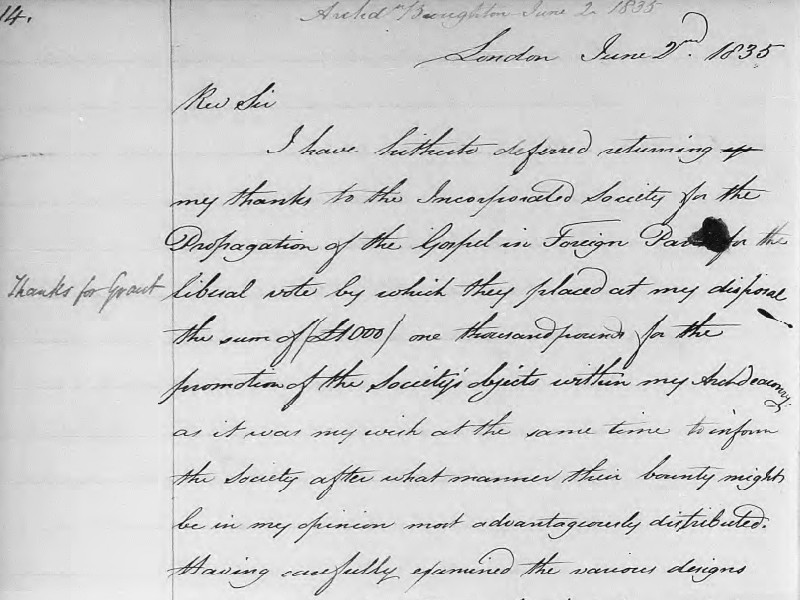 14.
Archdn Broughton June 2 1835
London June 2nd. 1835
Rev Sir
I have hitherto deferred returning
my thanks to the Incorporated Society for the
Propagation of the Gospel in Foreign for the
Thanks for Grant
liberal vote by which they placed at my disposal
the sum of (£1000) one thousand pounds for the
promotion of the Society's objects within my Archdeaconry;
as it was my wish at the same time to inform
the Society after what manner their bounty might
be in my opinion most advantageously distributed.
Having carefully examined the various designs